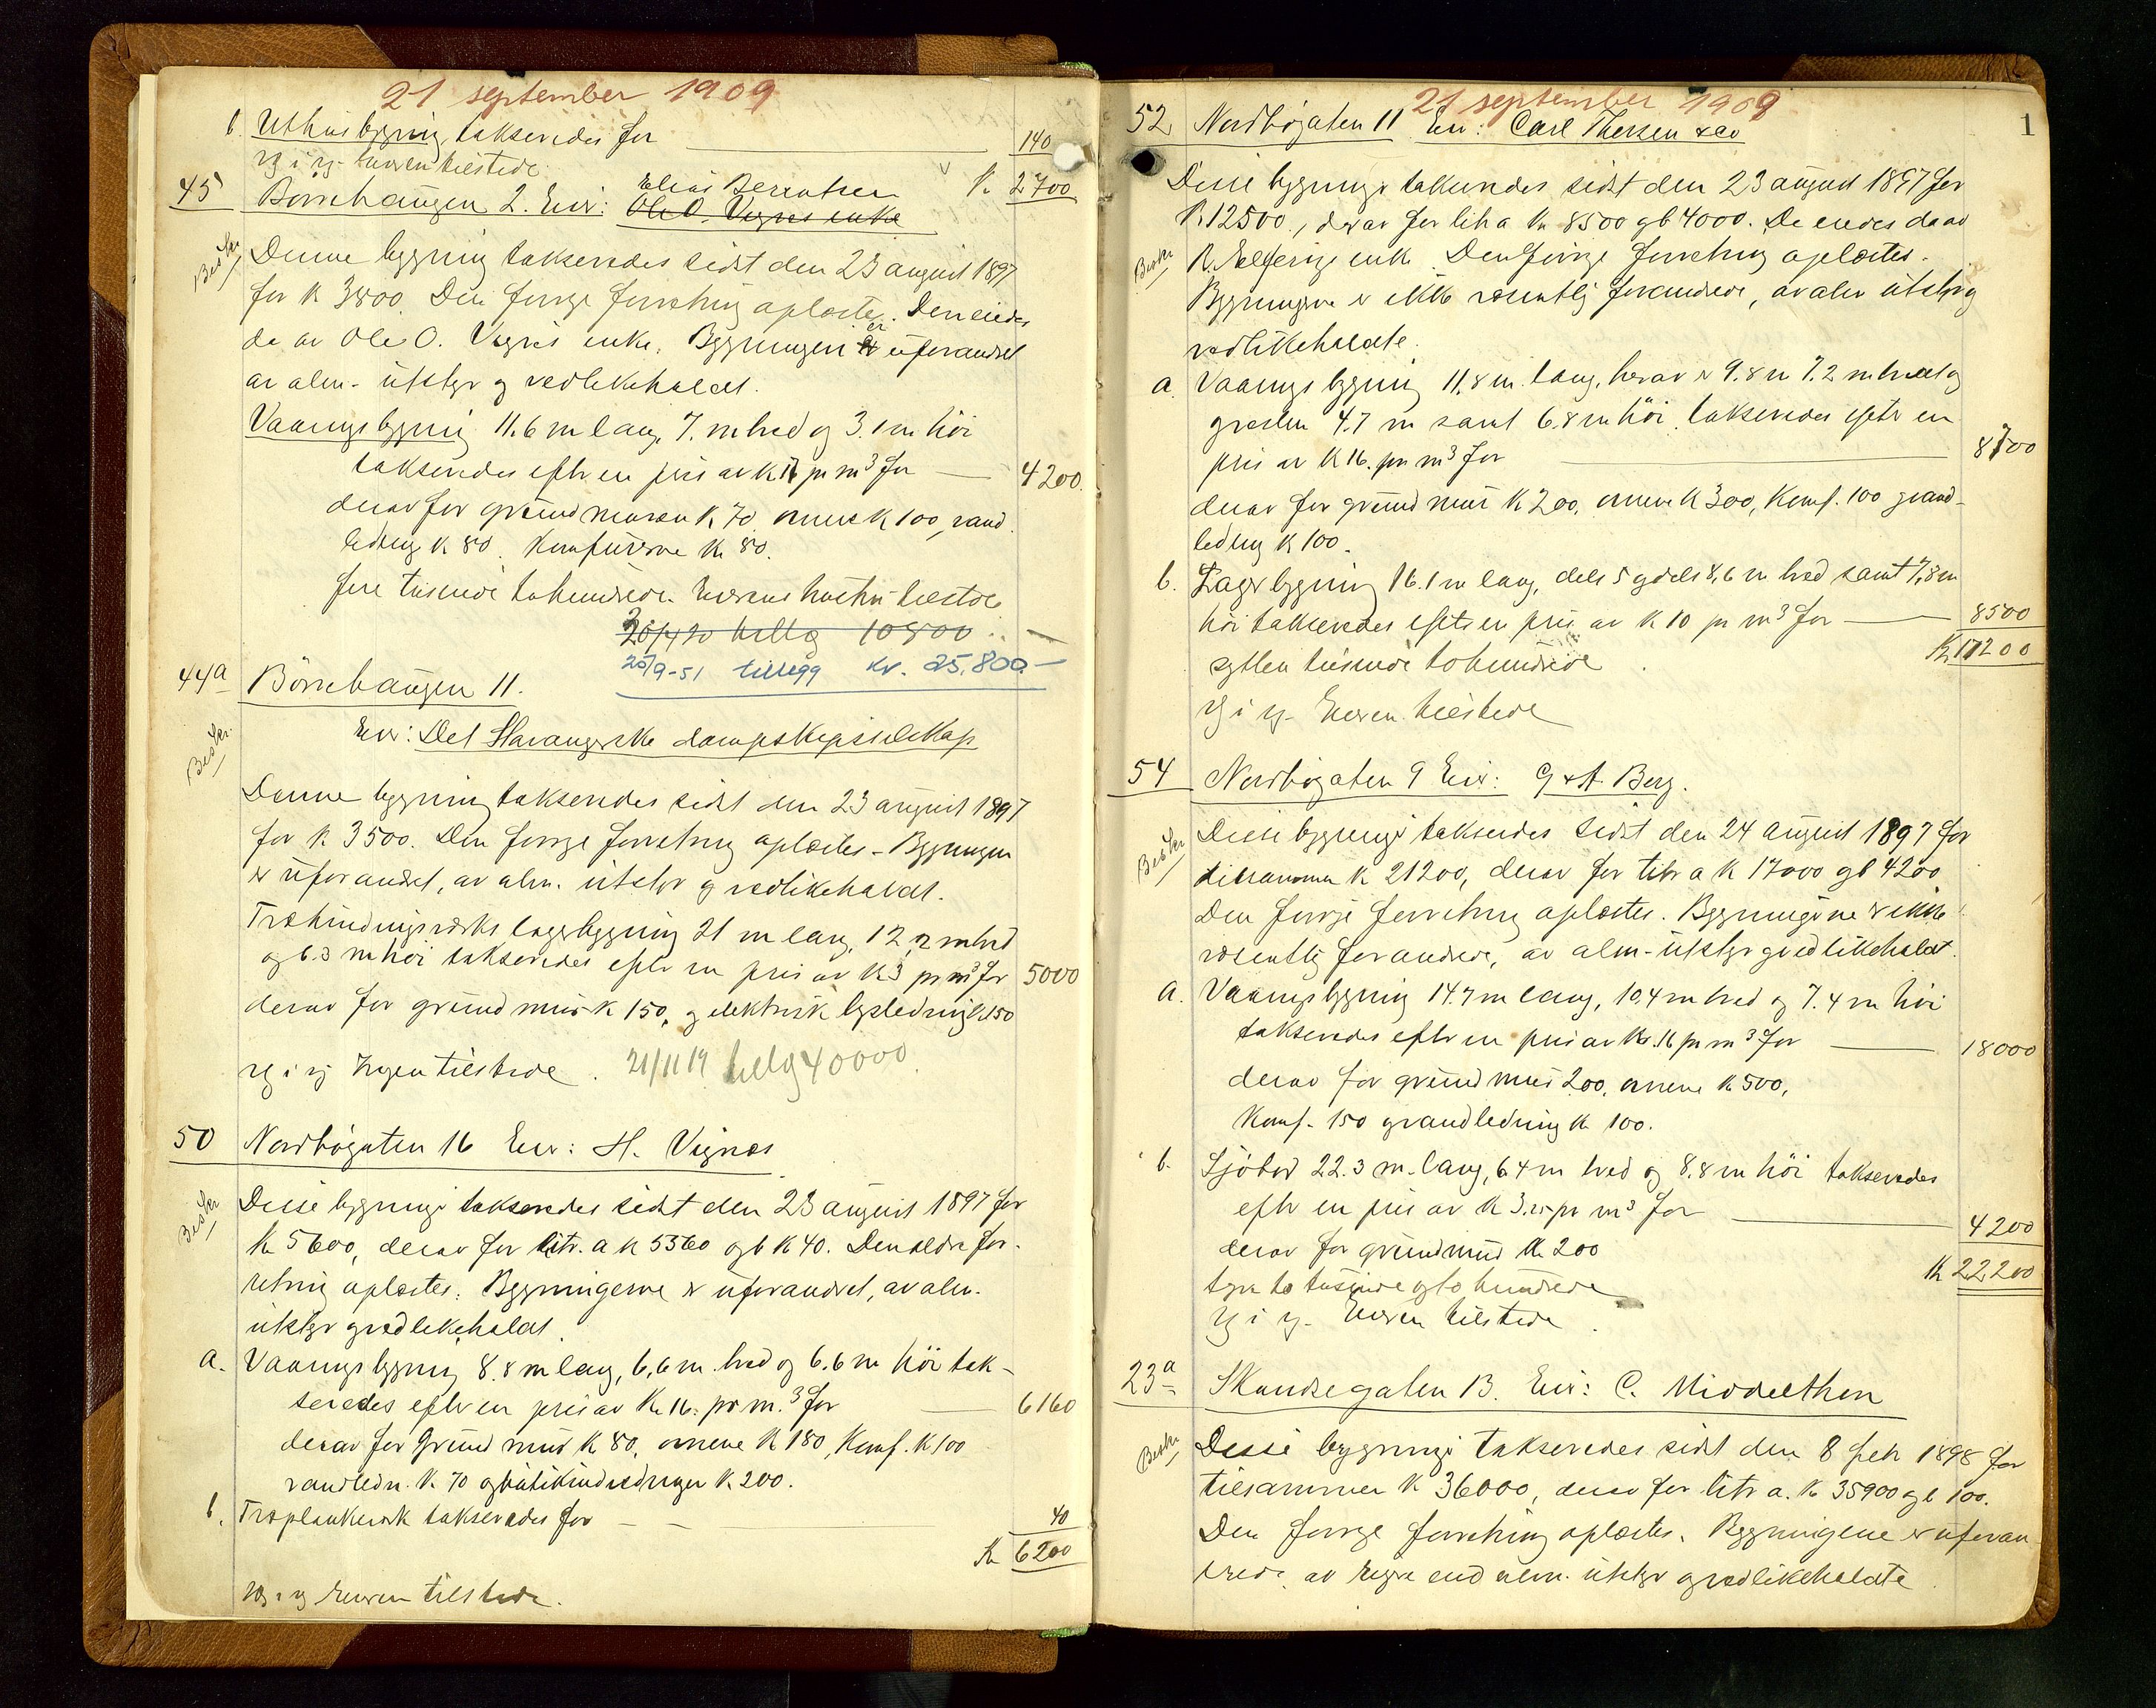 21 september 1909
b. Uthusbygning takseredes for 140
Eieren tilstede. K 2700
45 Börnehaugen 2. Eier: Elias Berentsen
Ole O. Vignes enke
Beskr. Denne bygning takseredes sidst den 23 august 1897
for K 3800. Den forrige forretning oplæstes. Den eiedes
da av Ole O. Vignes enke. Bygningen er uforandret
av alm. utstyr og vedlikeholdt.
Vaaningsbygning 11.6 m lang, 7. m bred og 3.1 m höi
takseredes efter en pris av K pr m³ for 4200.
derav for grundmuren K 70, ovnene K 100, vand-
ledning K 80. Komfurerne K 80.
fire tusinde tohundrede. Eierens hustru tilstede
20/4 20 tillæg 10800
25/9-51 tillegg kr. 25.800.-
44a Börnehaugen 11.
Eier: Det Stavangerske dampskipsselskap
Beskr. Denne bygning takseredes sidst den 23 august 1897
for K 3500. Den forrige forretning oplæstes - Bygningen
er uforandret, av alm. utstyr og vedlikeholdt.
Træbindingsverks lagerbygning 21 m lang, 12,2 m bred
og 6.3 m höi takseredes efter en pris av K 3 pr m³ for 5000
derav for grundmur K 150, og elektrisk lysledning K 150
Ingen tilstede. 21/11 19 tillæg 40000
50 Nordbögaten 16 Eier: H. Vignes
Beskr. Disse bygninger takseredes sidst den 23 august 1897 for
K 5600, derav for litr. a K 5360 og b K 40. Den ældre for-
retning oplæstes. Bygningerne er uforandret, av alm.
utstyr og vedlikeholdt.
a. Vaaningsbygning 8.8 m lang, 6,6 m bred og 6.6 m höi tak-
seredes efter en pris av K 16. pr m.³ for 6160
derav for Grundmur K 80, ovnene K 180, Komf. K 100
vandledn. K 70 og butikindredninger K 200.
b. Træplankeverk takseredes for 40
K 6200
Eieren tilstede.
21 september 1909
1
52 Nordbögaten 11 Eier: Carl Thersen & co
Disse bygninger takseredes sidst den 23 august 1897 for
K 12500, derav for litr a K 8500 og b 4000. De eiedes da av
Beskr. enke. Den forrige forretning oplæstes.
Bygningerne er ikke væsentlig forandrede, av alm utstyr og
vedlikeholdte.
a. Vaaningsbygning 11.8 m. lang, herav er 9.8 m 7.2 m bred og
resten 4.7 m samt 6.8 m höi, takseredes efter en
pris av K 16. pr m³ for 8700
derav for grundmur K 200, ovnene K 300, Komf. 100 og vand-
ledning K 100.
b. Lagerbygning 16.1 m lang, dels 5 og dels 8,6 m bred samt 7,8 m
höi takseredes efter en pris av K 10 pr m³ for 8500
K 17200
sytten tusinde tohundrede
Eieren tilstede
54 Nordbögaten 9 Eier: G & A. Berg.
Beskr. Disse bygninger takseredes sidst den 24 august 1897 for
tilsammen K 21200, derav for litr a K 17000 og b 4200
Den forrige forretning oplæstes. Bygningerne er ikke
væsentlig forandrede, av alm. utstyr og vedlikeholdt.
a. Vaaningsbygning 14.7 m lang, 10.4 m bred og 7.4 m höi
takseredes efter en pris av Kr. 16 pr m³ for 18000
derav for grundmur 200, ovnene K 500,
Komf. 150 og vandledning K 100.
b. Sjöbod 22.3 m. lang, 6.4 m bred og 8.8 m höi takseredes
efter en pris av K 3.25 pr m³ for 4200
derav for grundmur K 200
K 22,200
tyve to tusinde og to hundrede
Eieren tilstede.
23a Skandsegaten 13. Eier: C. Middelthon
Beskr. Disse bygninger takseredes sidst den 8 feb 1898 for
tilsammen K 36000, derav for litr a. K 35900 og b 100.
Den forrige forretning oplæstes. Bygningene er uforan
drede, av bedre end alm. utstyr og vedlikeholdte